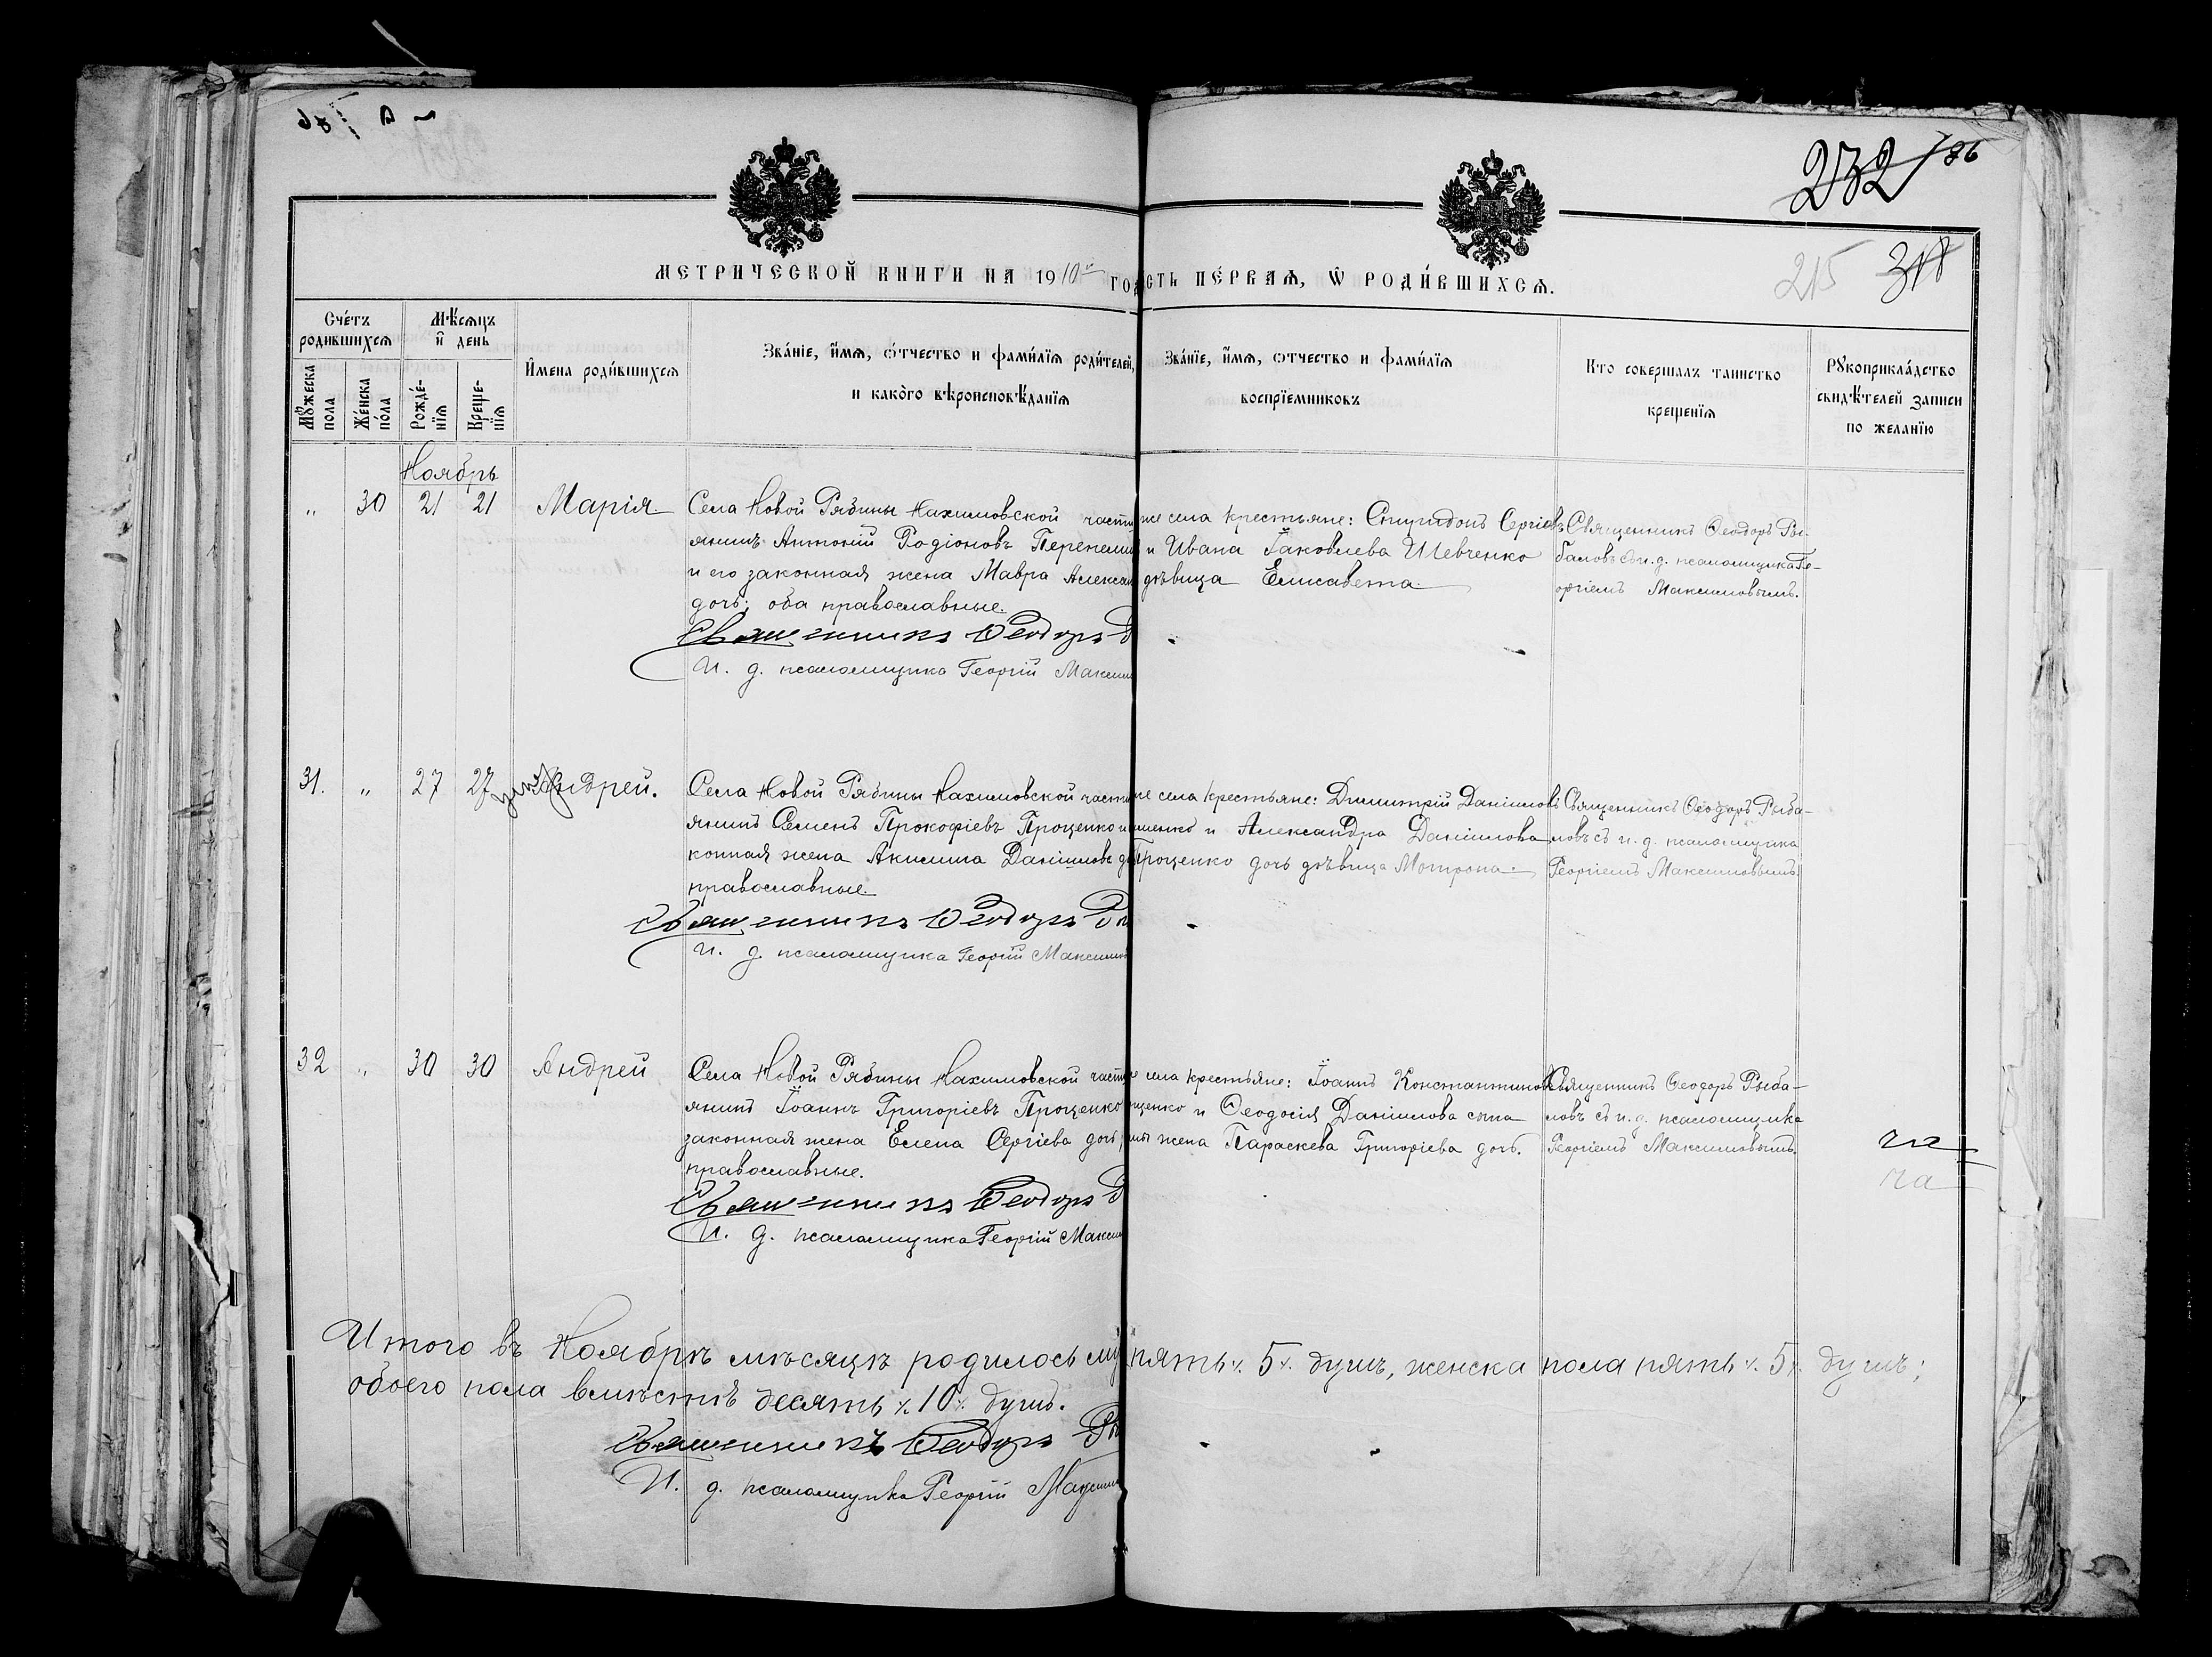 232
186
215
318
МЕТРИЧЕСКОЙ КНИГИ НА 1910й ГО
СТЬ ПЕ́РВАѦ, Ѡ РОДИ́ВШИХСѦ.
Сче́тъ родившихсѧ
Мѣ́сѧцъ и҆ день
Мꙋ́жеска пола
Же́нска по́ла
Рожде́-нїѧ
Креще-нїѧ
И҆мена роди́вшихсѧ
Зва́нїе, и҆́мѧ, ѻ҆́тчество и фами́лїѧ роди́телей,
и како́го вѣроисповѣ́данїѧ
Зва́нїе, и҆́мѧ, ѻтчество и фами́лїѧ
воспрїемниковъ
Кто совершалъ таинство
крещенїѧ
Рꙋкоприкла́дство
свидѣ́телей записи
по желанїю
Ноябрь
„ 30 21 21 Марія
Села Новой Рябины Нахимовской части
янинъ Антоній Родіоновъ Перепели
и его законная жена Мавра Алексан
дочь; оба православные.
Священникъ Ѳеодоръ Р
И. д. псаломщика Георгій Максим
же села крестьяне: Спиридонъ Сергіевъ
и Ивана Іаковлева Шевченко
дѣвица Елисавета
Священникъ Ѳеодоръ Ры-
баловъ съ и. д. псаломщика Ге-
оргіемъ Максимовымъ.
31. „ 27 27 Андрей.
Села Новой Рябины Нахимовской части
янинъ Семенъ Прокофіевъ Проценко и
конная жена Акилина Даніилова д
православные.
Священникъ Ѳеодоръ Ры
И. д. псаломщика Георгій Максим
же села крестьяне: Димитрій Даніиловъ
и Александра Даніилова
Проценко дочь дѣвица Мотрона
Священникъ Ѳеодоръ Рыба-
ловъ съ и. д. псаломщика
Георгіемъ Максимовымъ.
32 „ 30 30 Андрей
Села Новой Рябины Нахимовской част
янинъ Іоаннъ Григоріевъ Проценко
законная жена Елена Сергіева дочь;
православные.
Священникъ Ѳеодоръ Р
И. д. псаломщика Георгій Максим
села крестьяне: Іоаннъ Константиновъ
щенко и Ѳеодосія Даніилова сына
жена Параскева Григоріева дочь.
Священникъ Ѳеодоръ Рыба-
ловъ съ и. д. псаломщика
Георгіемъ Максимовымъ.
Итого въ Ноябрѣ мѣсяцѣ родилось му пять ٪ 5 ٪ душъ, женска пола пять ٪ 5 ٪ душъ;
обоего пола вмѣстѣ десять ٪ 10 ٪ душъ.
Священникъ Ѳеодоръ Ры
И. д. псаломщика Георгій Максим